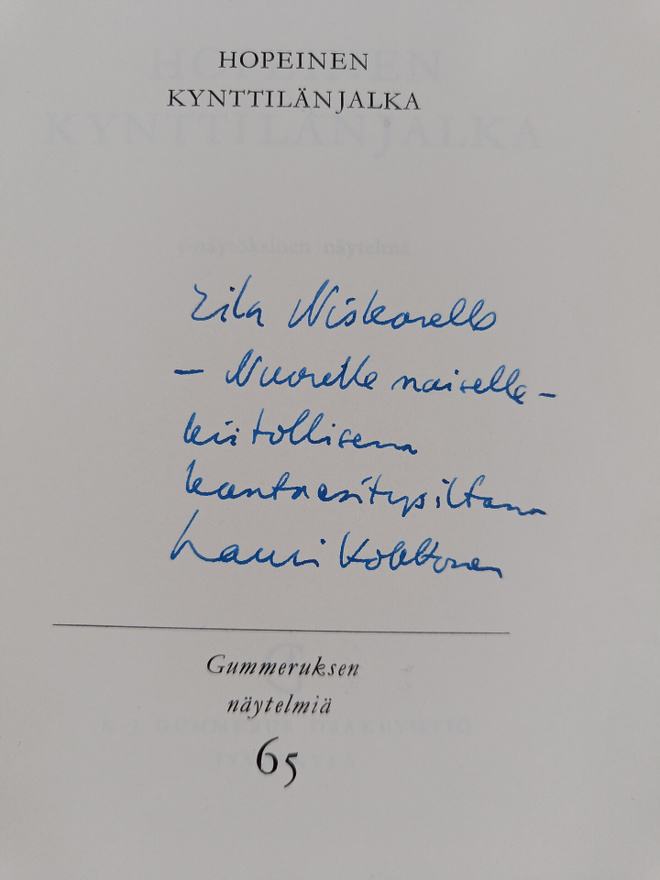 HOPEINEN
KYNTTILÄNJALKA
Eila Niskaselle
– Nuorelle naiselle –
kiitollisena
kantaesitysiltana
Lauri Kokkonen
Gummeruksen
näytelmiä
65